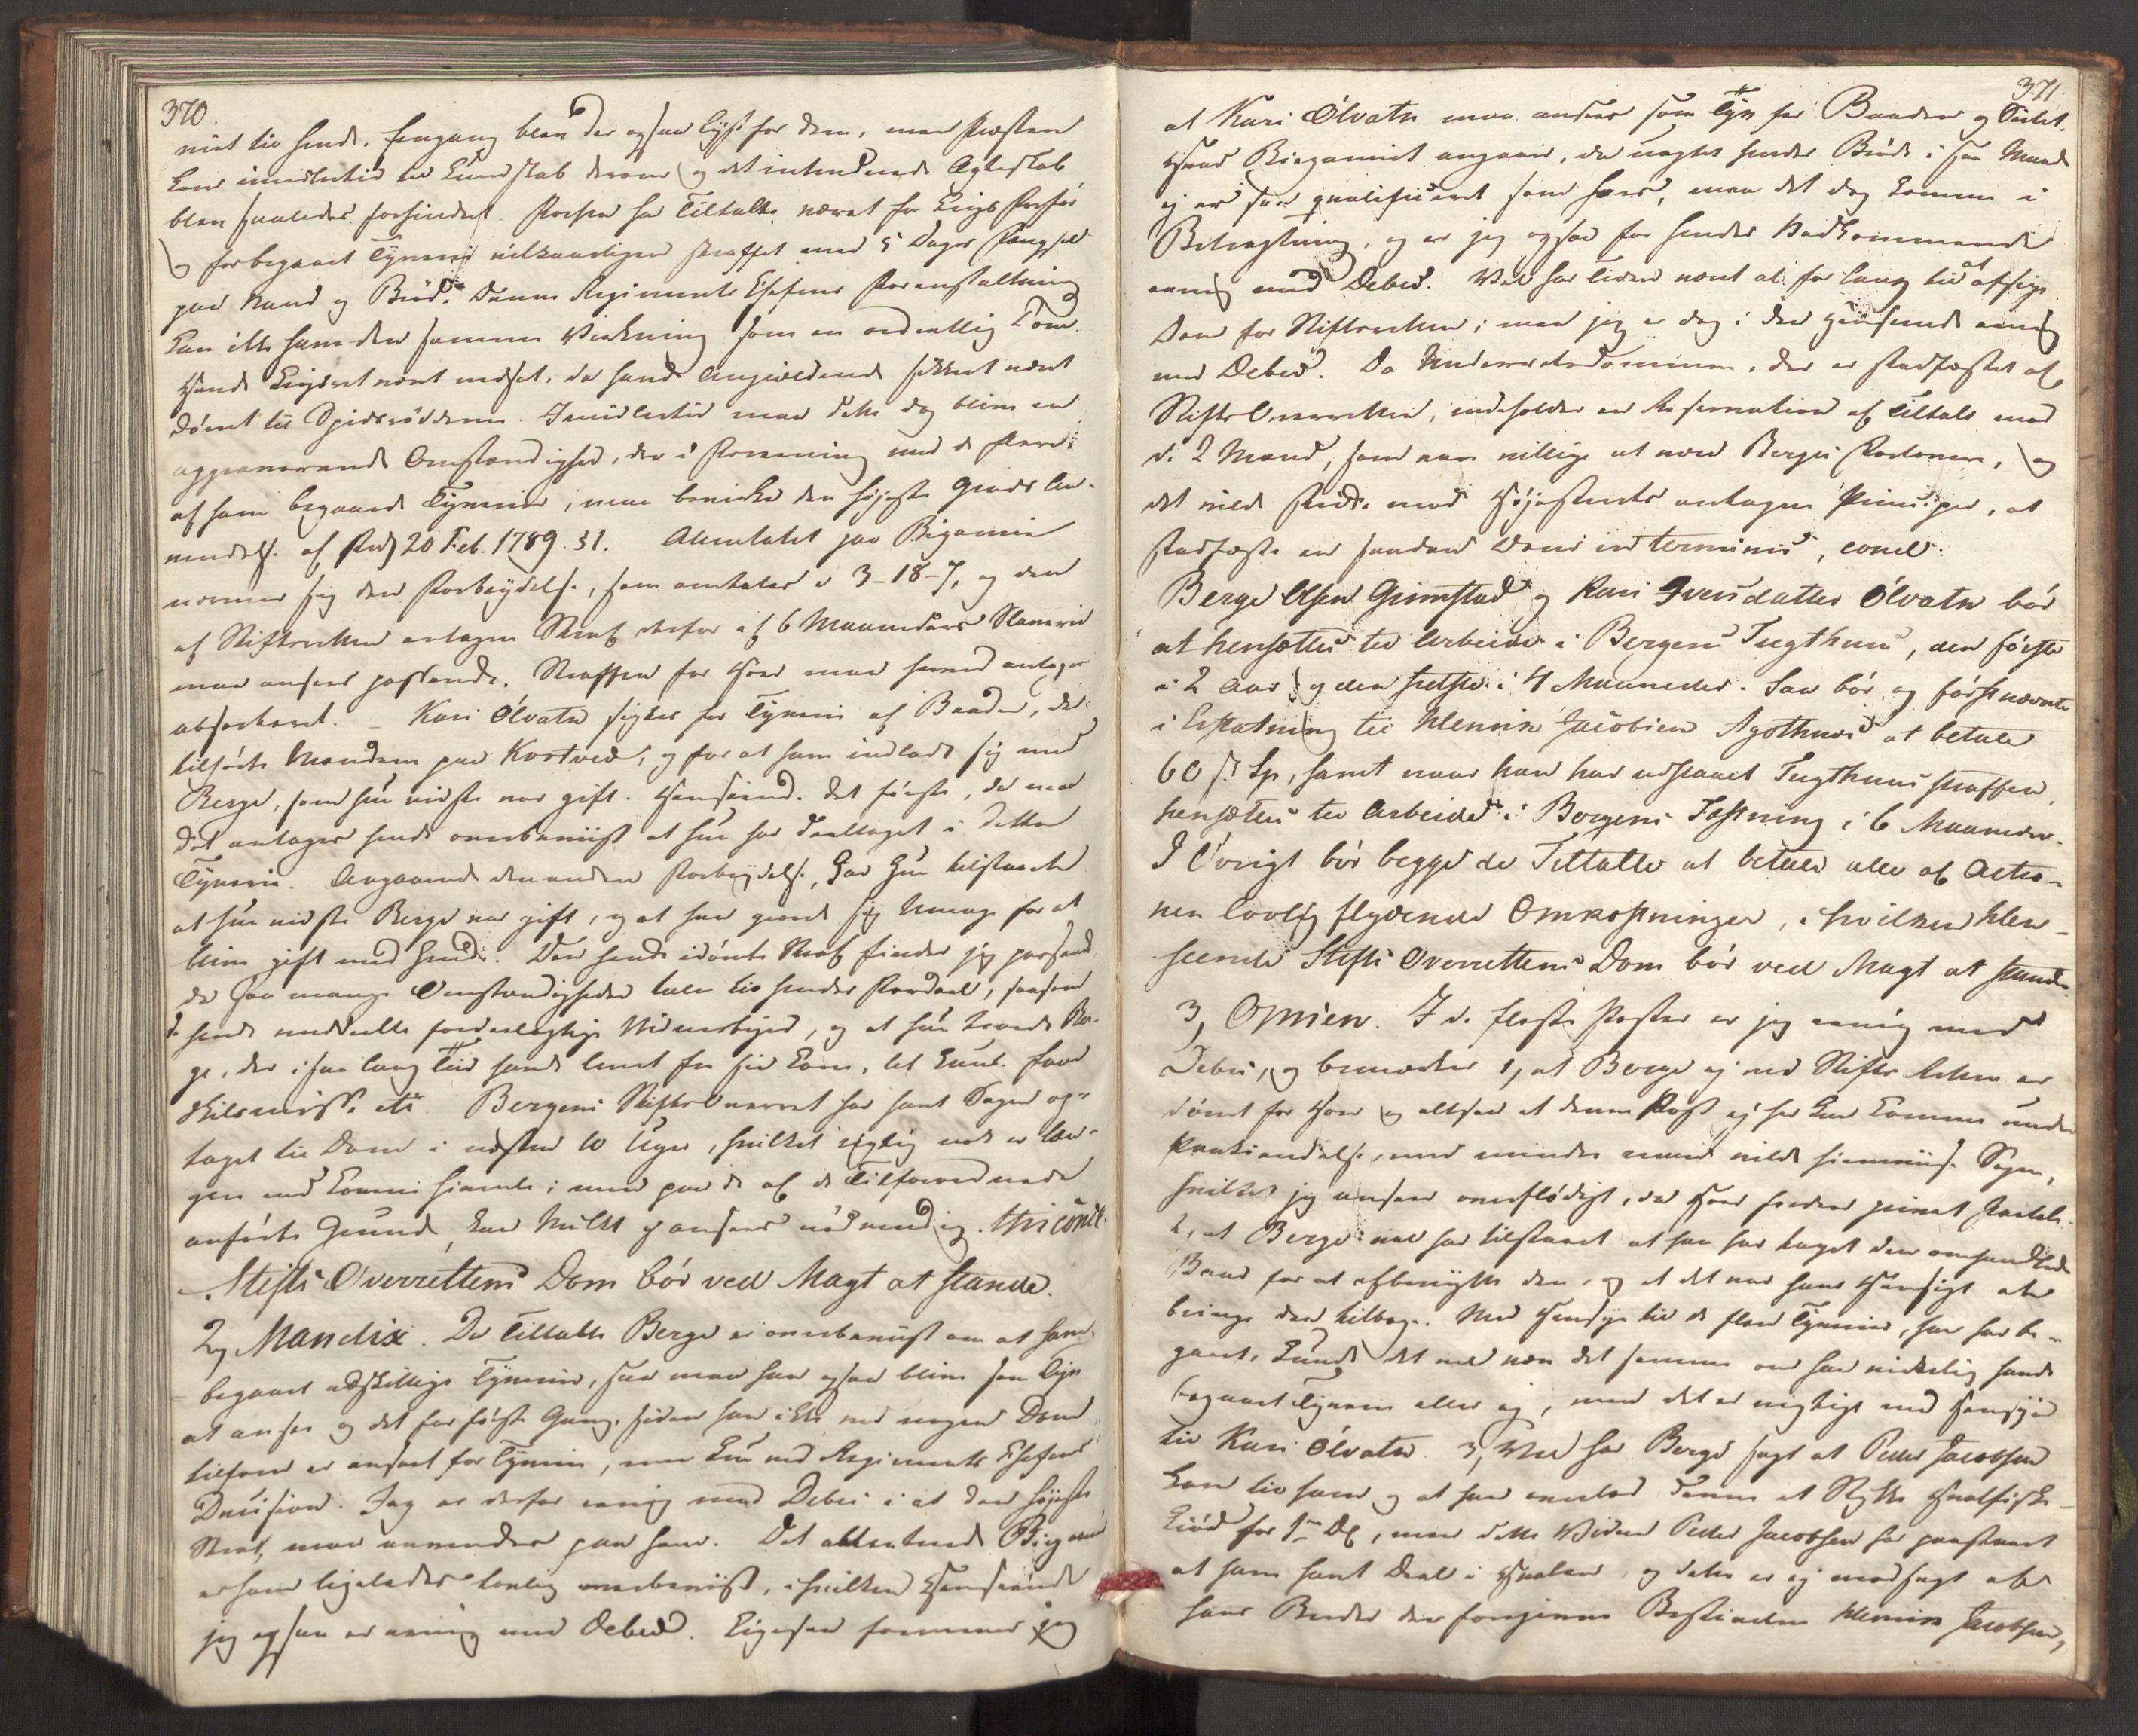 370.
viet til hende. Engang blev der ogsaa lyst for dem, men Præsten
kom imidlertid til Kundskab derom og det intenderede Ægteskab
blev saaledes forhindret. Forhen har Tiltalte været for Krigs Forhør
og for begaaet Tyverie vilkaarligen straffet med 5 Dages Fængsel
paa Vand og Brød. Denne Regiments Chefens Foranstaltning
kan ikke have den samme Virkning som en ordentlig Dom
havde Krigsret været nedsat, da havde Angjeldende sikkert været
dømt til Spidsrødderne. Imidlertid maa dette dog blive en
aggraverende Omstændighed, der i Forening med de flere
af ham begaaede Tyverier, maa bevirke den højeste Grads An-
vendelse af Frdg 20 Feb. 1789. §1. Attentatet paa Bigamie
nærmer sig den Forbrydelse, som omtales i 3-18-7, og den
af Stiftsretten antagne Straf derfor af 6 Maaneders Slaverie
maa ansees passende. Straffen for Hoer maa herved antages
absorberet. – Kari Ølvatn sigtes for Tyverie af Baaden, der
tilhørte Manden paa Kortved, og for at have indladt sig med
Berge, som hun vidste var gift. Henseende det første, da maa
det antages hende overbeviist at hun har deeltaget i dette
Tyverie. Angaaende den anden Forbrydelse, har hun tilstaaet
at hun vidste Berge var gift, og at han gjorde sig Umage for at
blive gift med hende. Den hende idømte Straf finder jeg passende
da saa mange Omstændigheder taler til hendes Fordeel, saasom
hende meddeelte fordeelagtige Vidnesbyrd, og at hun troede Ber-
ge, der i saa lang Tiid havde levet fra sin Kone, let kunde faae
Skilsmisse etc. Bergens Stifts Overret har havt Sagen op-
taget til Dom i næsten 10 Uger, hvilket rigtig nok er læn-
gere end Loven hjemler; men paa de af de Tilforordnede
anførte Grunde, kan Mulkt ej ansees nødvendig. thi concl.
Stifts Overrettens Dom bør ved Magt at stande.
2, Mandix. Da Tiltalte Berge er overbeviist om at have
begaaet adskillige Tyverier, saa maa han ogsaa blive som Tyv
at ansee og det for første Gang, siden han ikke ved nogen Dom
tilforn er anseet for Tyverie, men kun ved Regiments Chefens
Decision. Jeg er derfor eenig med Debes i at den højeste
Straf, maa anvendes paa ham. Det attenterede Bigamie
er ham ligeledes lovlig overbeviist, i hvilken Henseende
jeg ogsaa er eenig med Debes. Ligesaa formener jeg
371.
at Kari Ølvatn maa ansees som Tyv for Baaden og Seilet.
Hvad Bigamiet angaaer, da uagtet hendes Brøde i saa Maade
ej er saa qvalificeret som hans, maa det dog komme i
Betragtning, og er jeg ogsaa for hendes Vedkommende
eenig med Debes. Vel har tiden været al for lang til at afsige
Dom for Stiftsretten; men jeg er dog i den Henseende eenig
med Debes. Da Underretsdommen, der er stadfæstet af
Stifts Overretten, indeholder en Reservation af Tiltale mod
de 2 Mænd, som vare villige at være Berges Forlovere, og
det vilde stride mod Højesterets antagne Principer, at
stadfæste en saadan Dom in terminis, concl:
Berge Olsen Grimstad og Kari Iversdatter Ølvatn bør
at hensættes til Arbeide i Bergens Tugthuus, den første
i 2 Aar og den sidste i 4 Maaneder. Saa bør og førstnævnte
i Erstatning til Henrik Jacobsen Agothnes at betale
60 s. Sp, samt naar han har udstaaet Tugthuusstraffen,
hensættes til Arbeide i Bergens Fæstning i 6 Maaneder.
I Øvrigt bør begge de Tiltalte at betale alle af Actio-
nen lovlig flydende Omkostninger, i hvilken Hen-
seende Stifts Overrettens Dom bør ved Magt at stande.
3, Omsen. I de fleste Poster er jeg eenig med
Debes, og bemærker 1, at Berge ej ved Stifts Retten er
dømt for Hoer og altsaa at denne Post ej her kan komme under
Paakiendelse, med mindre man vilde hiemviise Sagen,
hvilket jeg anseer overflødigt, da Hoer henhører privat Paatale.
2, at Berge vel har tilstaaet at han har taget den omhandlede
Baad for at afbenytte den, og at det var hans Hensigt at
bringe den tilbage. Med Hensyn til de flere Tyverier, han har be-
gaaet, kunde det vel være det samme om han virkelig havde
begaaet Tyverie eller ej, men det er vigtigt med Hensyn
til Kari Ølvatn. 3, Vel har Berge sagt at Peder Jacobsen
kom til ham og at han overlod denne et Stykke Hvalfiske-
kiød for 1 Dl, men dette Vidne Peder Jacobsen har paastaaet
at have havt Deel i Hvalen, og dette er ej modsagt af
hans Broder den foregivne Bestiaalne Henrik Jacobsen,